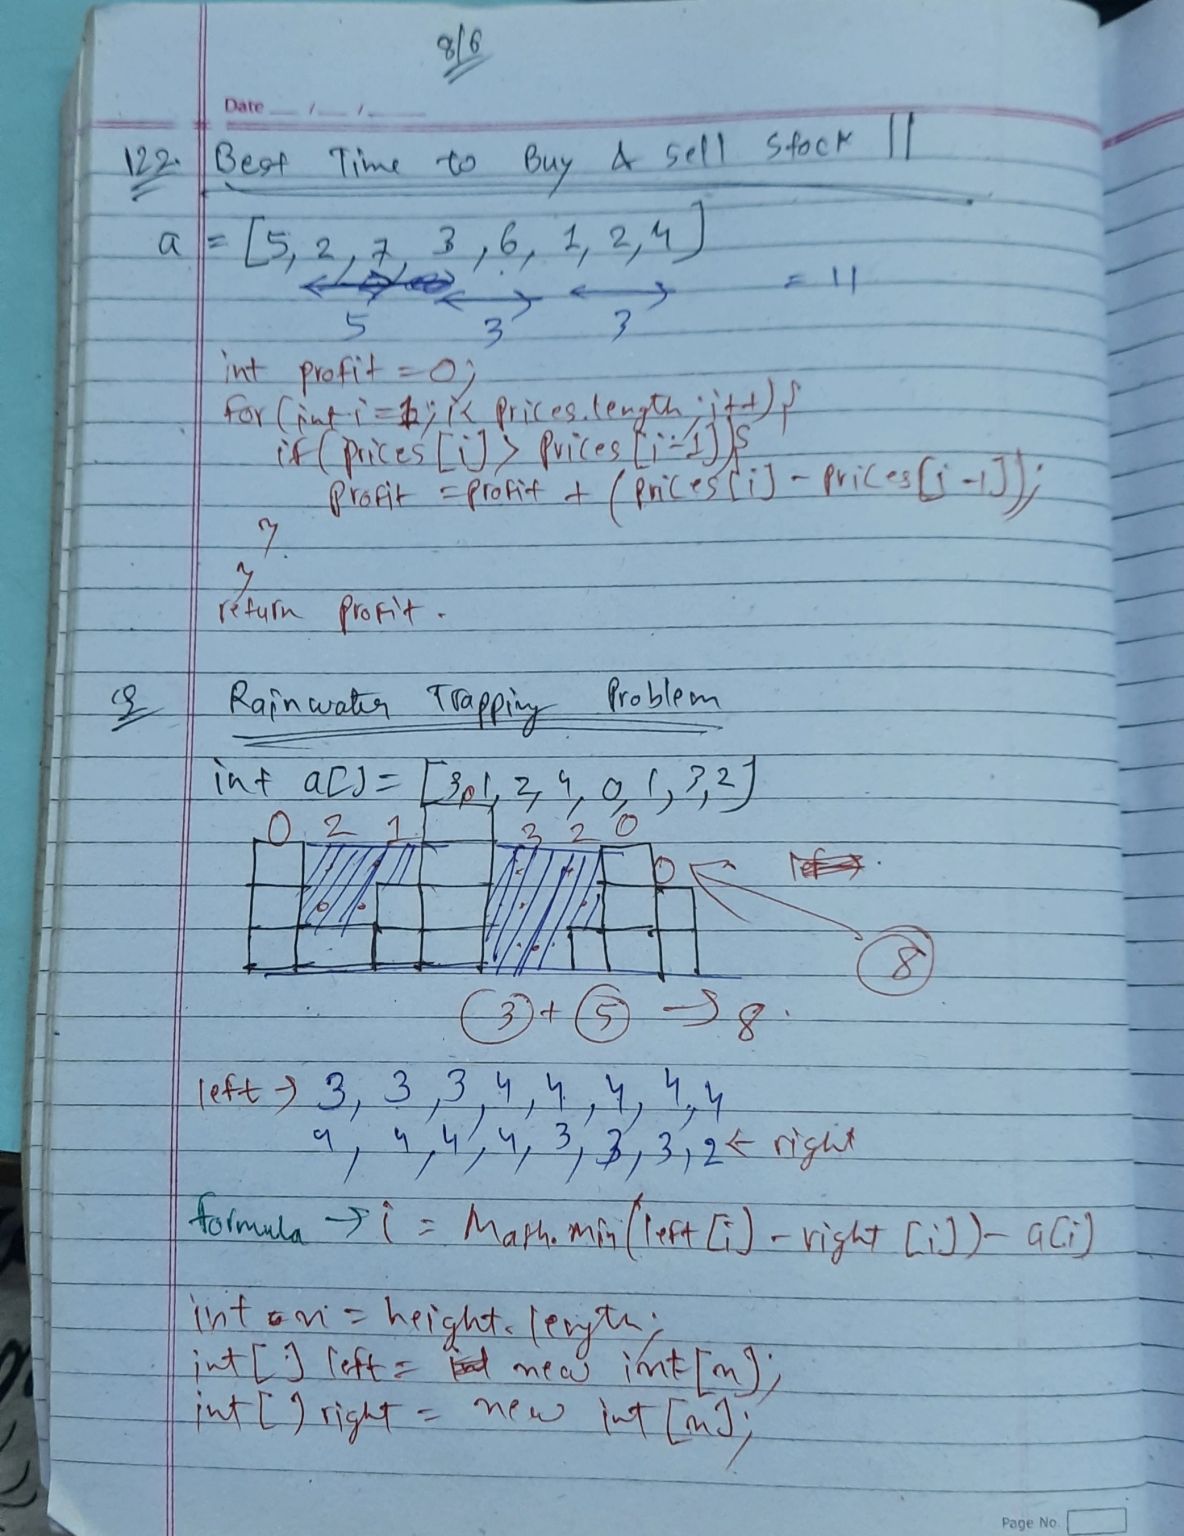 8/6
Date __/__/____
122. Best Time to Buy & Sell Stock II
a = [5, 2, 7, 3, 6, 1, 2, 4]
= 11
5 3 3
int profit = 0;
for (int i = 1; i < prices.length; i++) {
if (prices[i] > prices[i-1]) {
profit = profit + (prices[i] - prices[i-1]);
}
}
return profit.
Q Rainwater Trapping Problem
int a[] = [3, 1, 2, 4, 0, 1, 3, 2]
0 2 1 3 2 0
0
8
3 + 5 → 8.
left → 3, 3, 3, 4, 4, 4, 4, 4
4, 4, 4, 4, 3, 3, 3, 2 ← right
formula → i = Math.min(left[i] - right[i]) - a[i]
int n = height.length;
int[] left = new int[n];
int[] right = new int[n];
Page No.